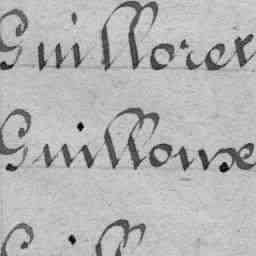 Guilloret
Guilloux